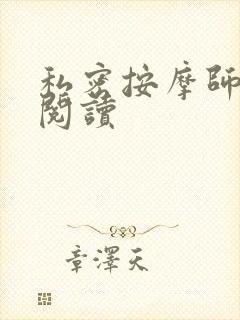 私密按摩師
閱讀
章澤天